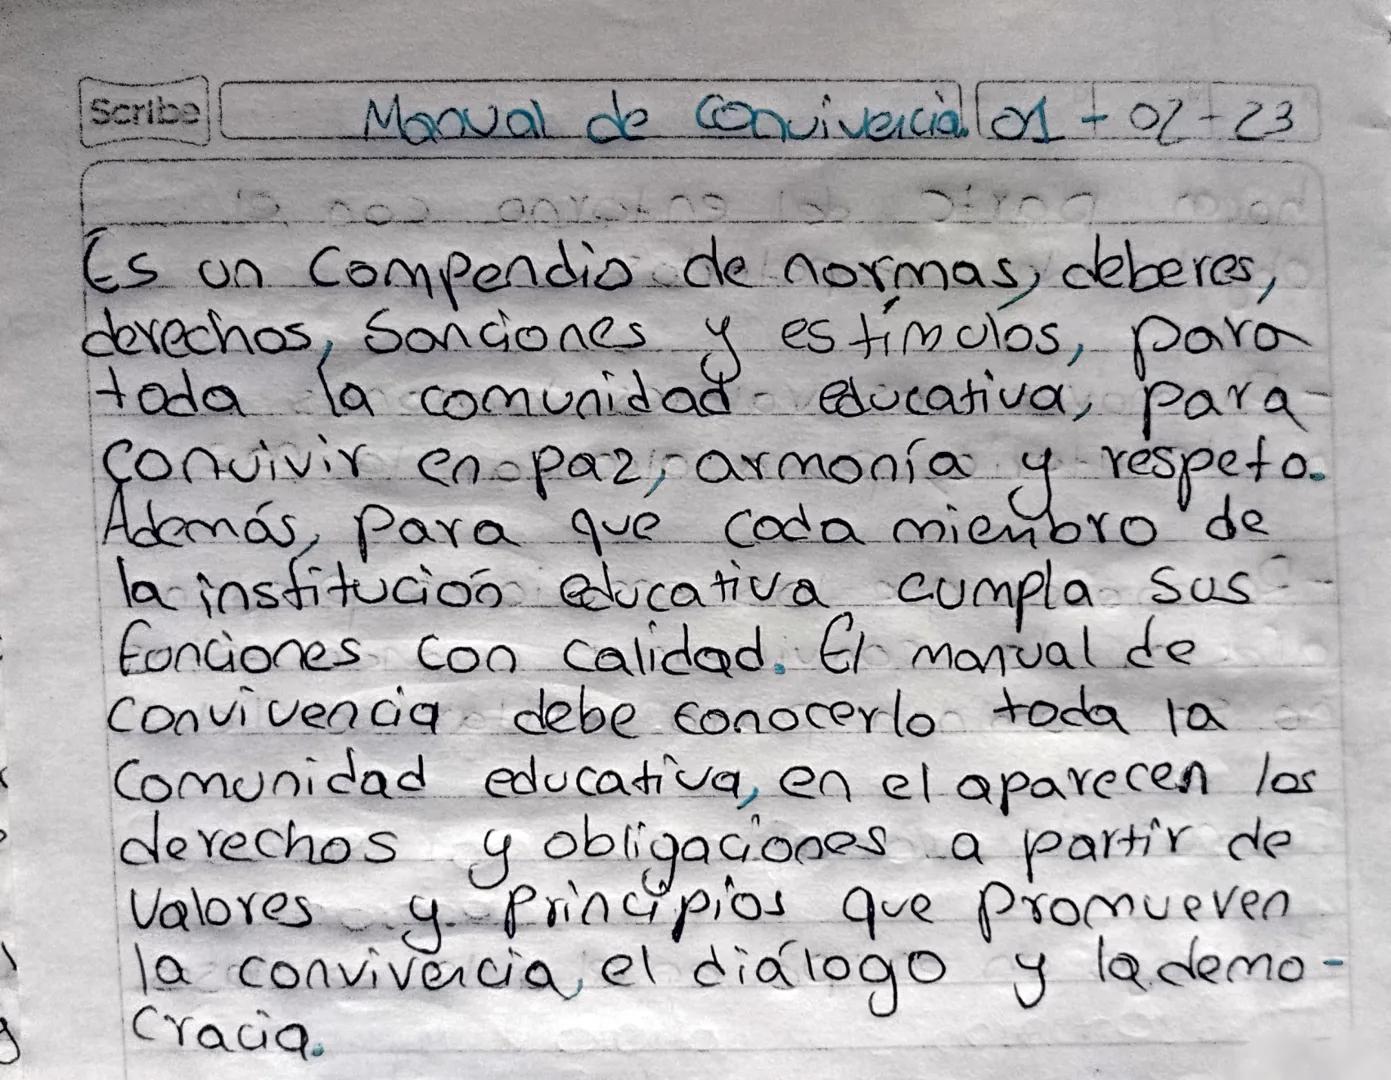 Scribe Manual de Convivencia. 01 - 02 - 23
Es un Compendio de normas, deberes,
derechos, Sanciones y estímulos, para
toda la comunidad educativa, para
convivir en paz, armonía y respeto.
Además, para que cada miembro de
la institución educativa cumpla sus
funciones con calidad. El manual de
convivencia debe conocerlo toda la
Comunidad educativa, en el aparecen los
derechos y obligaciones a partir de
Valores y Principios que promueven
la convivencia, el diálogo y la demo-
cracia.